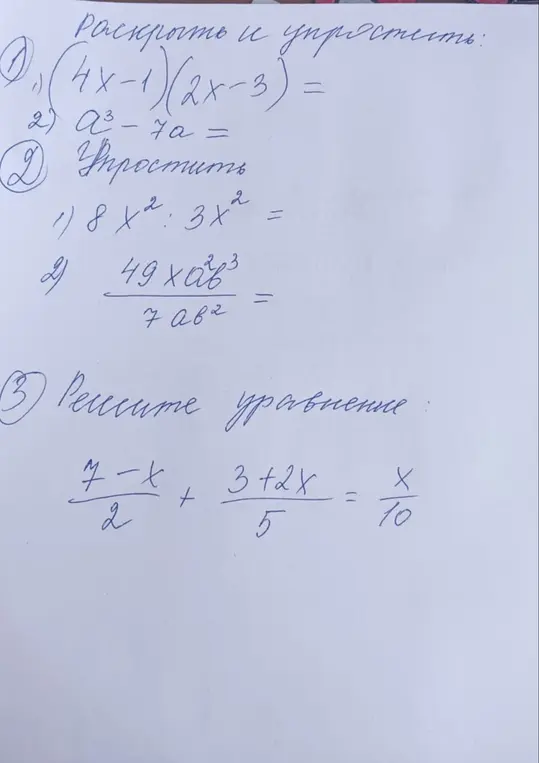 Раскрыть и упростить:
① 1) (4x-1)(2x-3) =
2) a³ - 7a =
② Упростить
1) 8x² : 3x² =
2) 49xa²b³
7ab² =
③ Решите уравнение:
7-x/2 + 3+2x/5 = x/10